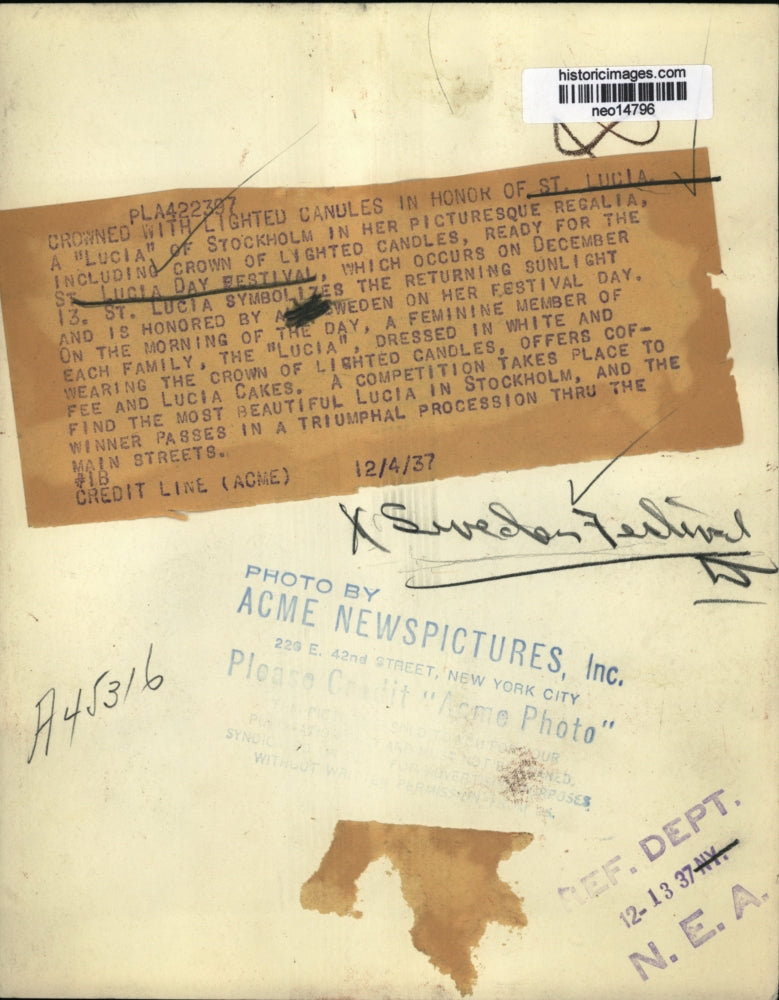 historicimages.com
neo14796
PLA422307
CROWNED WITH LIGHTED CANDLES IN HONOR OF ST. LUCIA.
A "LUCIA" OF STOCKHOLM IN HER PICTURESQUE REGALIA,
INCLUDING CROWN OF LIGHTED CANDLES, READY FOR THE
ST. LUCIA DAY FESTIVAL, WHICH OCCURS ON DECEMBER
13. ST. LUCIA SYMBOLIZES THE RETURNING SUNLIGHT
AND IS HONORED BY SWEDEN ON HER FESTIVAL DAY.
ON THE MORNING OF THE DAY, A FEMININE MEMBER OF
EACH FAMILY, THE "LUCIA", DRESSED IN WHITE AND
WEARING THE CROWN OF LIGHTED CANDLES, OFFERS COF-
FEE AND LUCIA CAKES. A COMPETITION TAKES PLACE TO
FIND THE MOST BEAUTIFUL LUCIA IN STOCKHOLM, AND THE
WINNER PASSES IN A TRIUMPHAL PROCESSION THRU THE
MAIN STREETS.
#1B
CREDIT LINE (ACME) 12/4/37
X Sweden Festival
PHOTO BY
ACME NEWSPICTURES, Inc.
220 E. 42nd STREET, NEW YORK CITY
Please Credit "Acme Photo"
WITHOUT WRITTEN PERMISSION
A45316
REF. DEPT.
12-13 37 NY.
N. E. A.